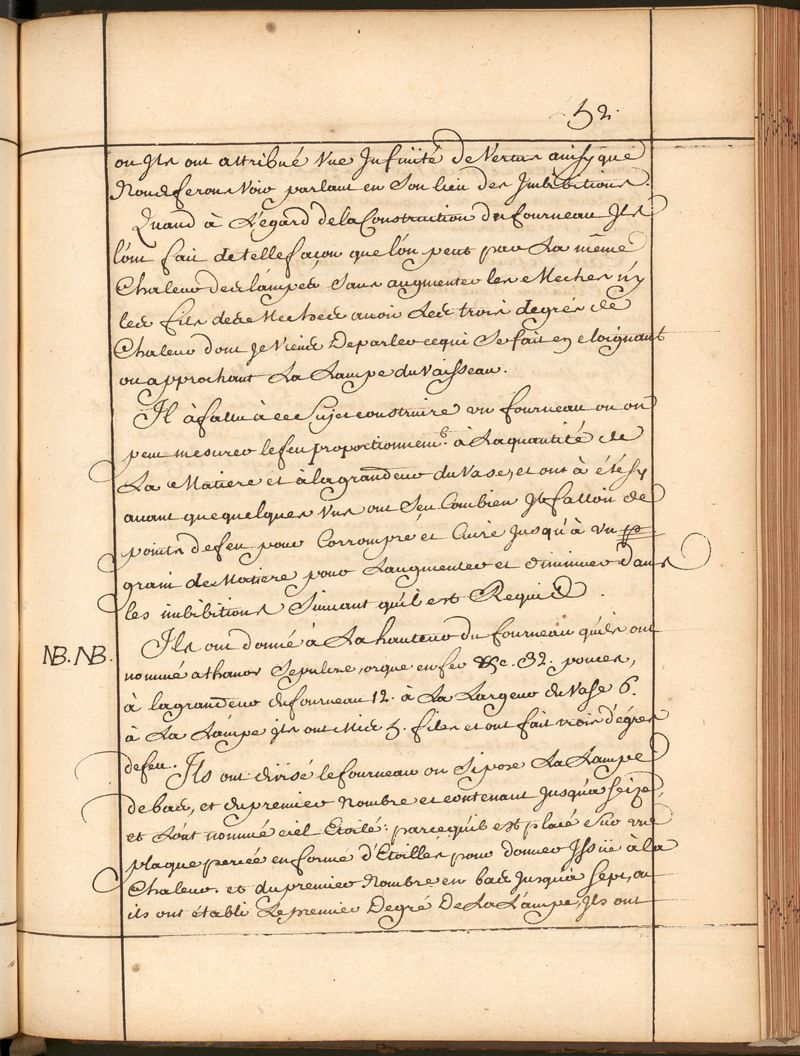 52.
ou Ils ont attribué Vne Infinité de Vertus ainsy que
Nous ferons Voir parlant en Son lieu des Imbibitions.
Quand à L'egard de la Construction du fourneau Ils
l'ont fait de telle façon que l'on peut par La même
Chaleur des lampes, Sans augmenter les Meches n'y
les fils des Meches avoir Les trois degrés de
Chaleur dont Je Viens De parler ce qui Se fait en eloignant
ou approchant La Lampe du Vaisseau.
Il à fallu à ce Sujet construire vn fourneau ou on
peut mesurer le feu proportionnem.t à La quantité de
La Matiere et à la grandeur du Vase, et ont à été sy
auant que quelques Vns ont Seu Combien Il falloit de
points de feu pour Corrompre et Cuire Jusqu'à vn
grain de Matiere pour L'augmenter et diminuer dans
les imbibitions Suiuant qu'il est Requis.
NB. NB.
Ils ont donné à La hauteur du fourneau qu'ils ont
nommé athanor Sepulcre, orque enfer &c. 32. pouces,
à la grandeur du fourneau 12. à La Largeur du Vase 6.
à La Lampe Ils ont Mis 5. files et ont fait trois dégrés
de feu. Ils ont divisé le fourneau ou Si pose La Lampe
de bas, et du premier Nombre et contenant Jusqu'a seize,
et L'ont nommé ciel Etoilé: parcequ'il est placé Sur vne
plaque percée en forme d'Etoilles pour donner Issüe à la
Chaleur. et du premier Nombre en bas Jusqu'a sept, ou
ils ont établi Le premier Degré De La Lampe, Ils ont